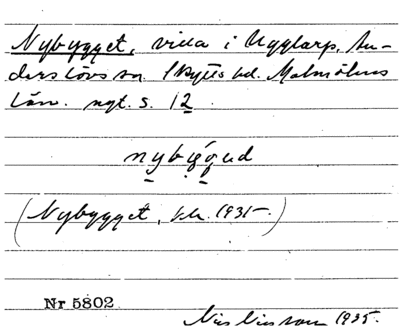 Nybygget, villa i Ugglarp, An-
derslövs sn. Skytts hd. Malmöhus
län. nyt. s. 12
nybyggud
(Nybygget, kh. 1931.)
Nr 5802
Nils Nilsson 1935.